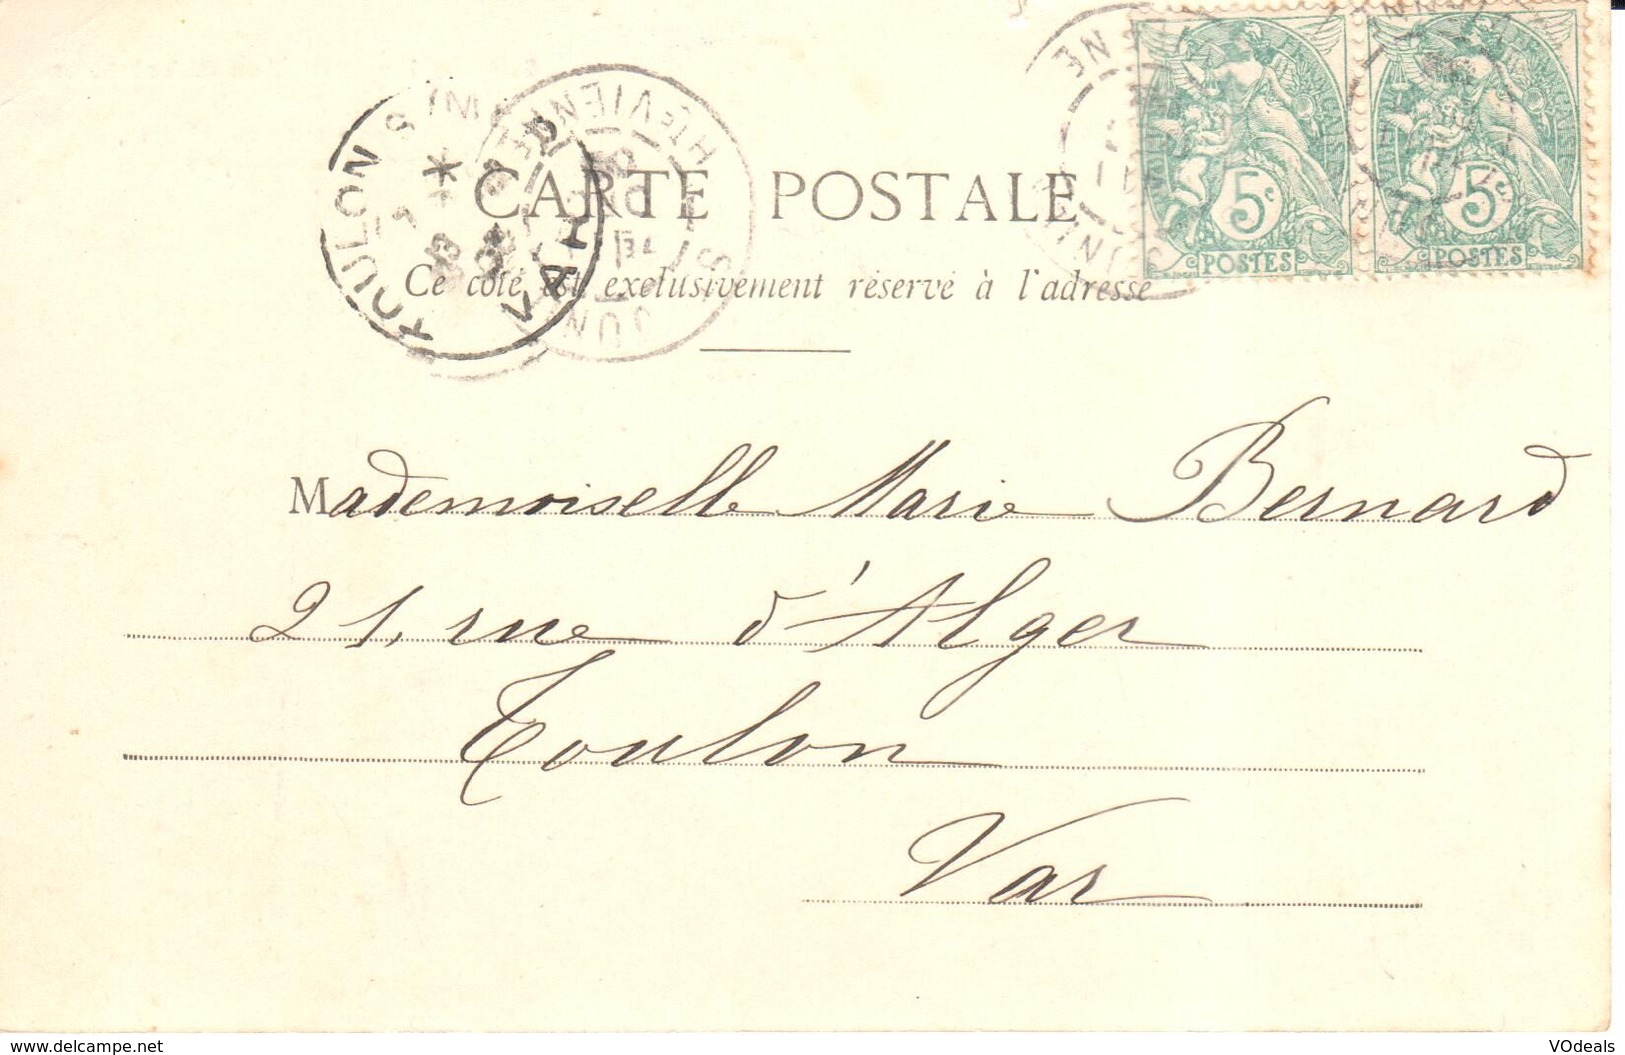 CARTE POSTALE
Ce côté est exclusivement réservé à l'adresse
5c
POSTES
5c
POSTES
TOULON S
VAR
ST JUN
HTE VIENNE
Mademoiselle Marie Bernard
21, rue d'Alger
Toulon
Var
www.delcampe.net
VOdeals